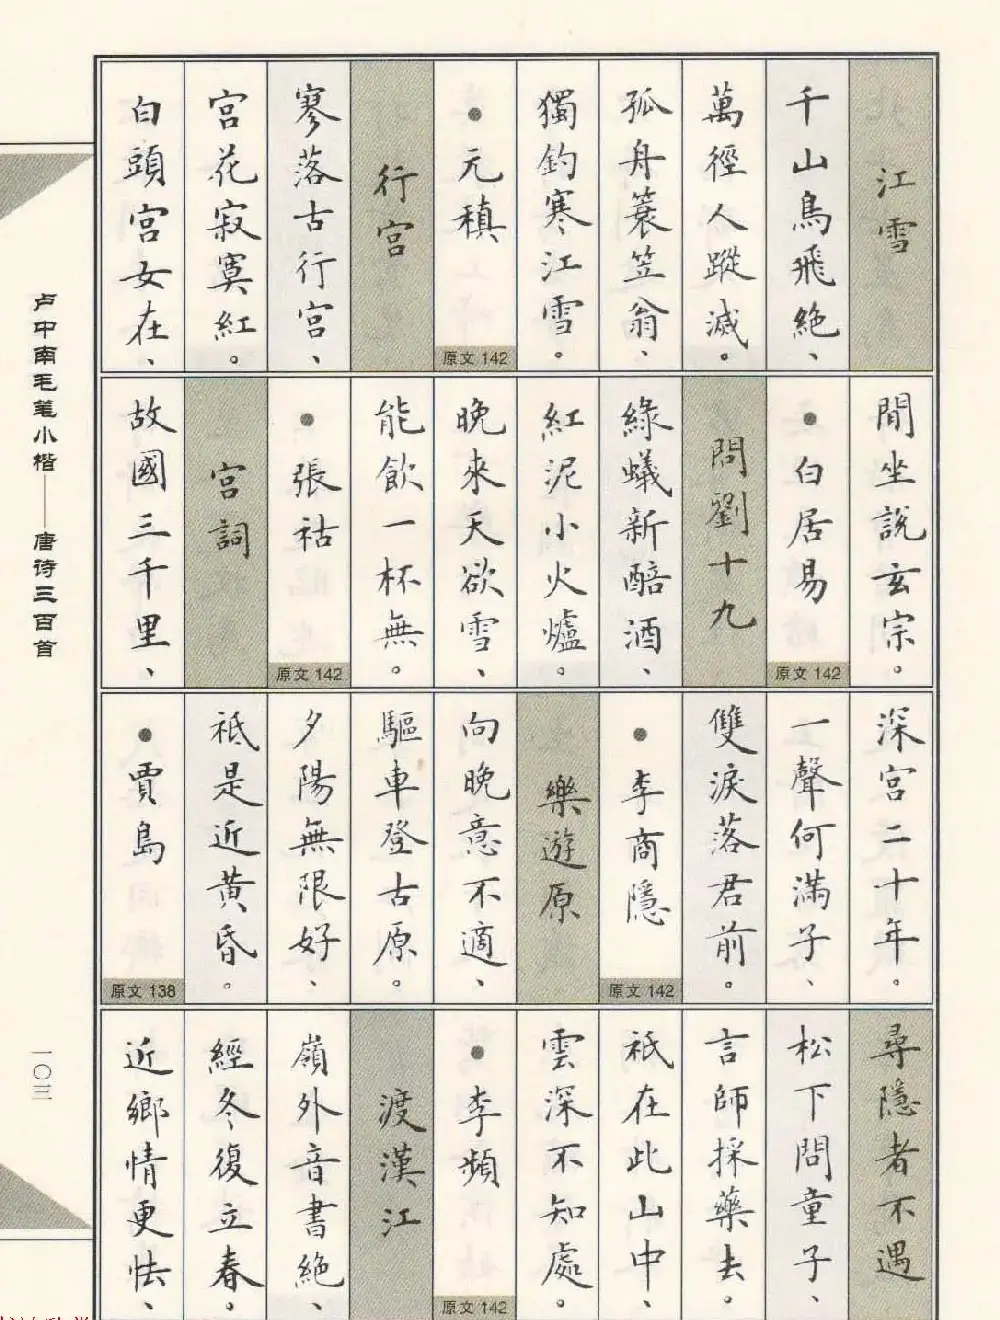 江雪
千山鳥飛絶、
萬徑人蹤滅。
孤舟蓑笠翁、
獨釣寒江雪。
●元稹
原文 142
行宮
寥落古行宮、
宮花寂寞紅。
白頭宮女在、
閒坐說玄宗。
●白居易
原文 142
問劉十九
綠蟻新醅酒、
紅泥小火爐。
晚來天欲雪、
能飲一杯無。
●張祜
原文 142
宮詞
故國三千里、
深宮二十年。
一聲何滿子、
雙淚落君前。
●李商隱
原文 142
樂遊原
向晚意不適、
驅車登古原。
夕陽無限好、
祗是近黄昏。
●賈島
原文 138
尋隱者不遇
松下問童子、
言師採藥去。
祇在此山中、
雲深不知處。
●李頻
原文 142
渡漢江
嶺外音書絶、
經冬復立春。
近鄉情更怯、
卢中南毛笔小楷——唐诗三百首
一〇三